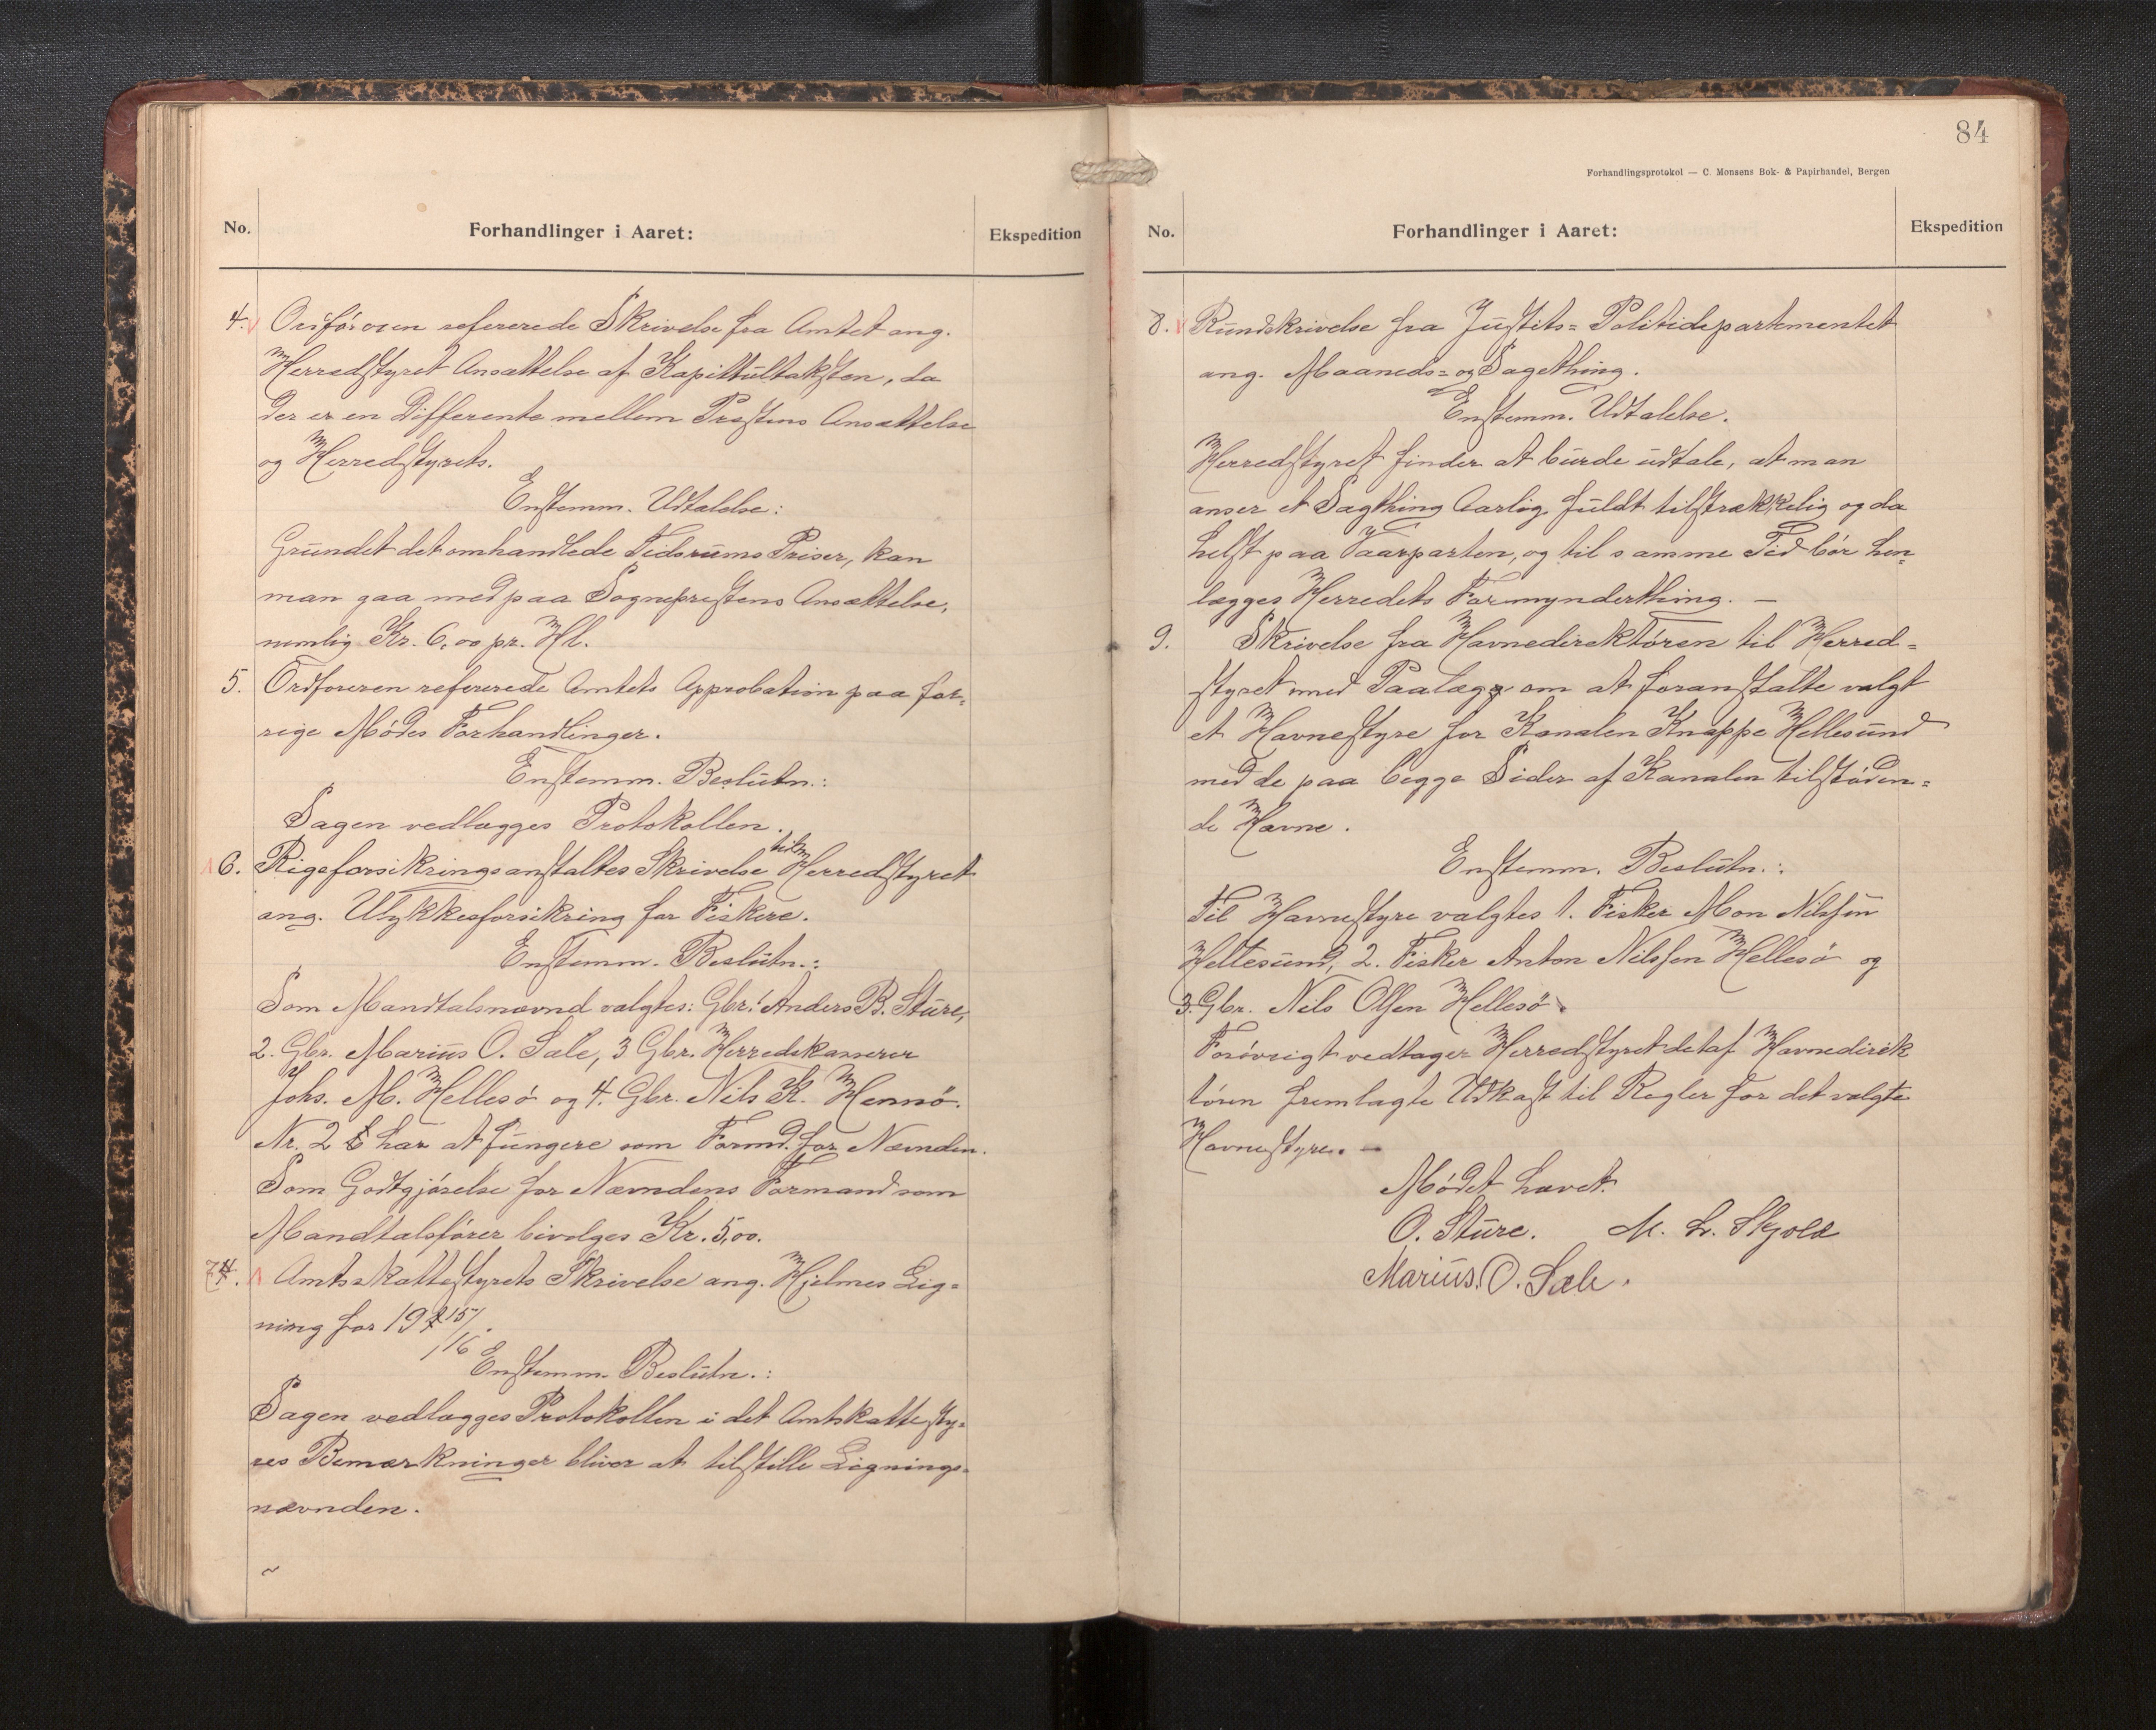 No.
Forhandlinger i Aaret:
Ekspedition
4. Ordføreren refererede Skrivelse fra Amtet ang.
Herredstyret Ansættelse af Kapittultaksten, da
der er en Differente mellem Prestens Ansættelse
og Herredstyrets.
Enstemm. Udtalelse:
Grundet det omhandlede Tidsrums Priser, kan
man gaa med paa Sogneprestens Ansættelse,
nemlig Kr. 6,00 pr. Hl.
5. Ordføreren refererede Amtets Approbation paa for-
rige Mødes Forhandlinger.
Enstemm. Beslutn.:
Sagen vedlægges Protokollen.
6. Rigsforsikringsanstaltes Skrivelse til Herredstyret
ang. Ulykkesforsikring for Fiskere.
Enstemm. Beslutn.:
Som Mandtalsnævnd valgtes: Gbr. Anders B. Sture,
2. Gbr. Marius O. Sale, 3 Gbr. Herredskasserer
Johs. M. Hellesø og 4. Gbr. Nils K. Hernø.
Nr. 2 har at fungere som Formd. for Nævnden.
Som Godtgjørelse for Nævndens Formand som
Mandtalsfører bivolges Kr. 5,00.
7. Amtsskattestyrets Skrivelse ang. Hjelmes Lig-
ning for 1915/
16
Enstemm. Beslutn.:
Sagen vedlægges Protokollen i det Amtskattesty-
res Bemærkninger bliver at tilstille Lignings-
nævnden.
~
84
Forhandlingsprotokol — C. Monsens Bok- & Papirhandel, Bergen
No.
Forhandlinger i Aaret:
Ekspedition
8. Rundskrivelse fra Justits= Politidepartementet
ang. Maaneds= og Sagething.
Enstemm. Udtalelse.
Herredstyret finder at burde udtale, at man
anser et Sagthing Aarlig fuldt tilstrækkelig og da
helst paa Vaarparten, og til samme Tid bør hen-
lægges Herredets Formynderthing. —
9. Skrivelse fra Havnedirektøren til Herred=
styret med Paalæg om at foranstalte valgt
et Havnestyre for Kanalen Knappe Hellesund
med de paa begge Sider af Kanalen tilstøden=
de Havne.
Enstemm. Beslutn.:
Til Havnestyre valgtes 1. Fisker Mon Nilssen
Hellesund, 2. Fisker Anton Nilssen Hellesø og
3. Gbr. Nils Olsen Hellesø.
Forøvrigt vedtager Herredstyret det af Havnedirek
tøren fremlagte Udkast til Regler for det valgte
Havnestyre. —
Mødet hævet.
O. Sture. M. L. Skjold
Marius. O. Sæle.